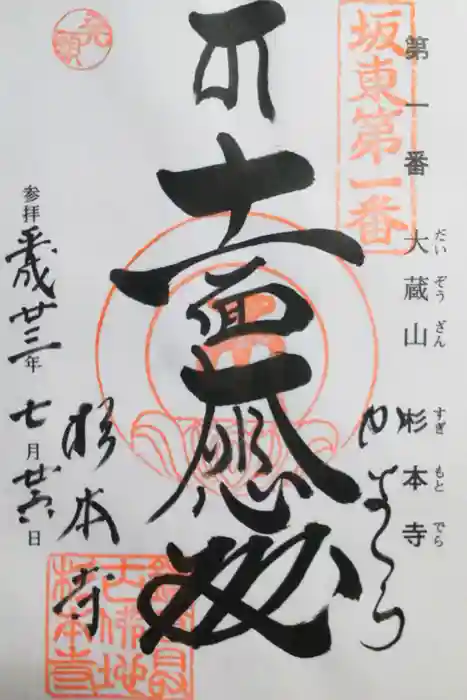 坂東第一番
第一番 大蔵山 杉本寺
だいぞうざん すぎもとでら
かまくら
十一面
杉本寺
参拝 平成廿三年 七月廿六日
発願
鎌倉最
古佛地
杉本寺